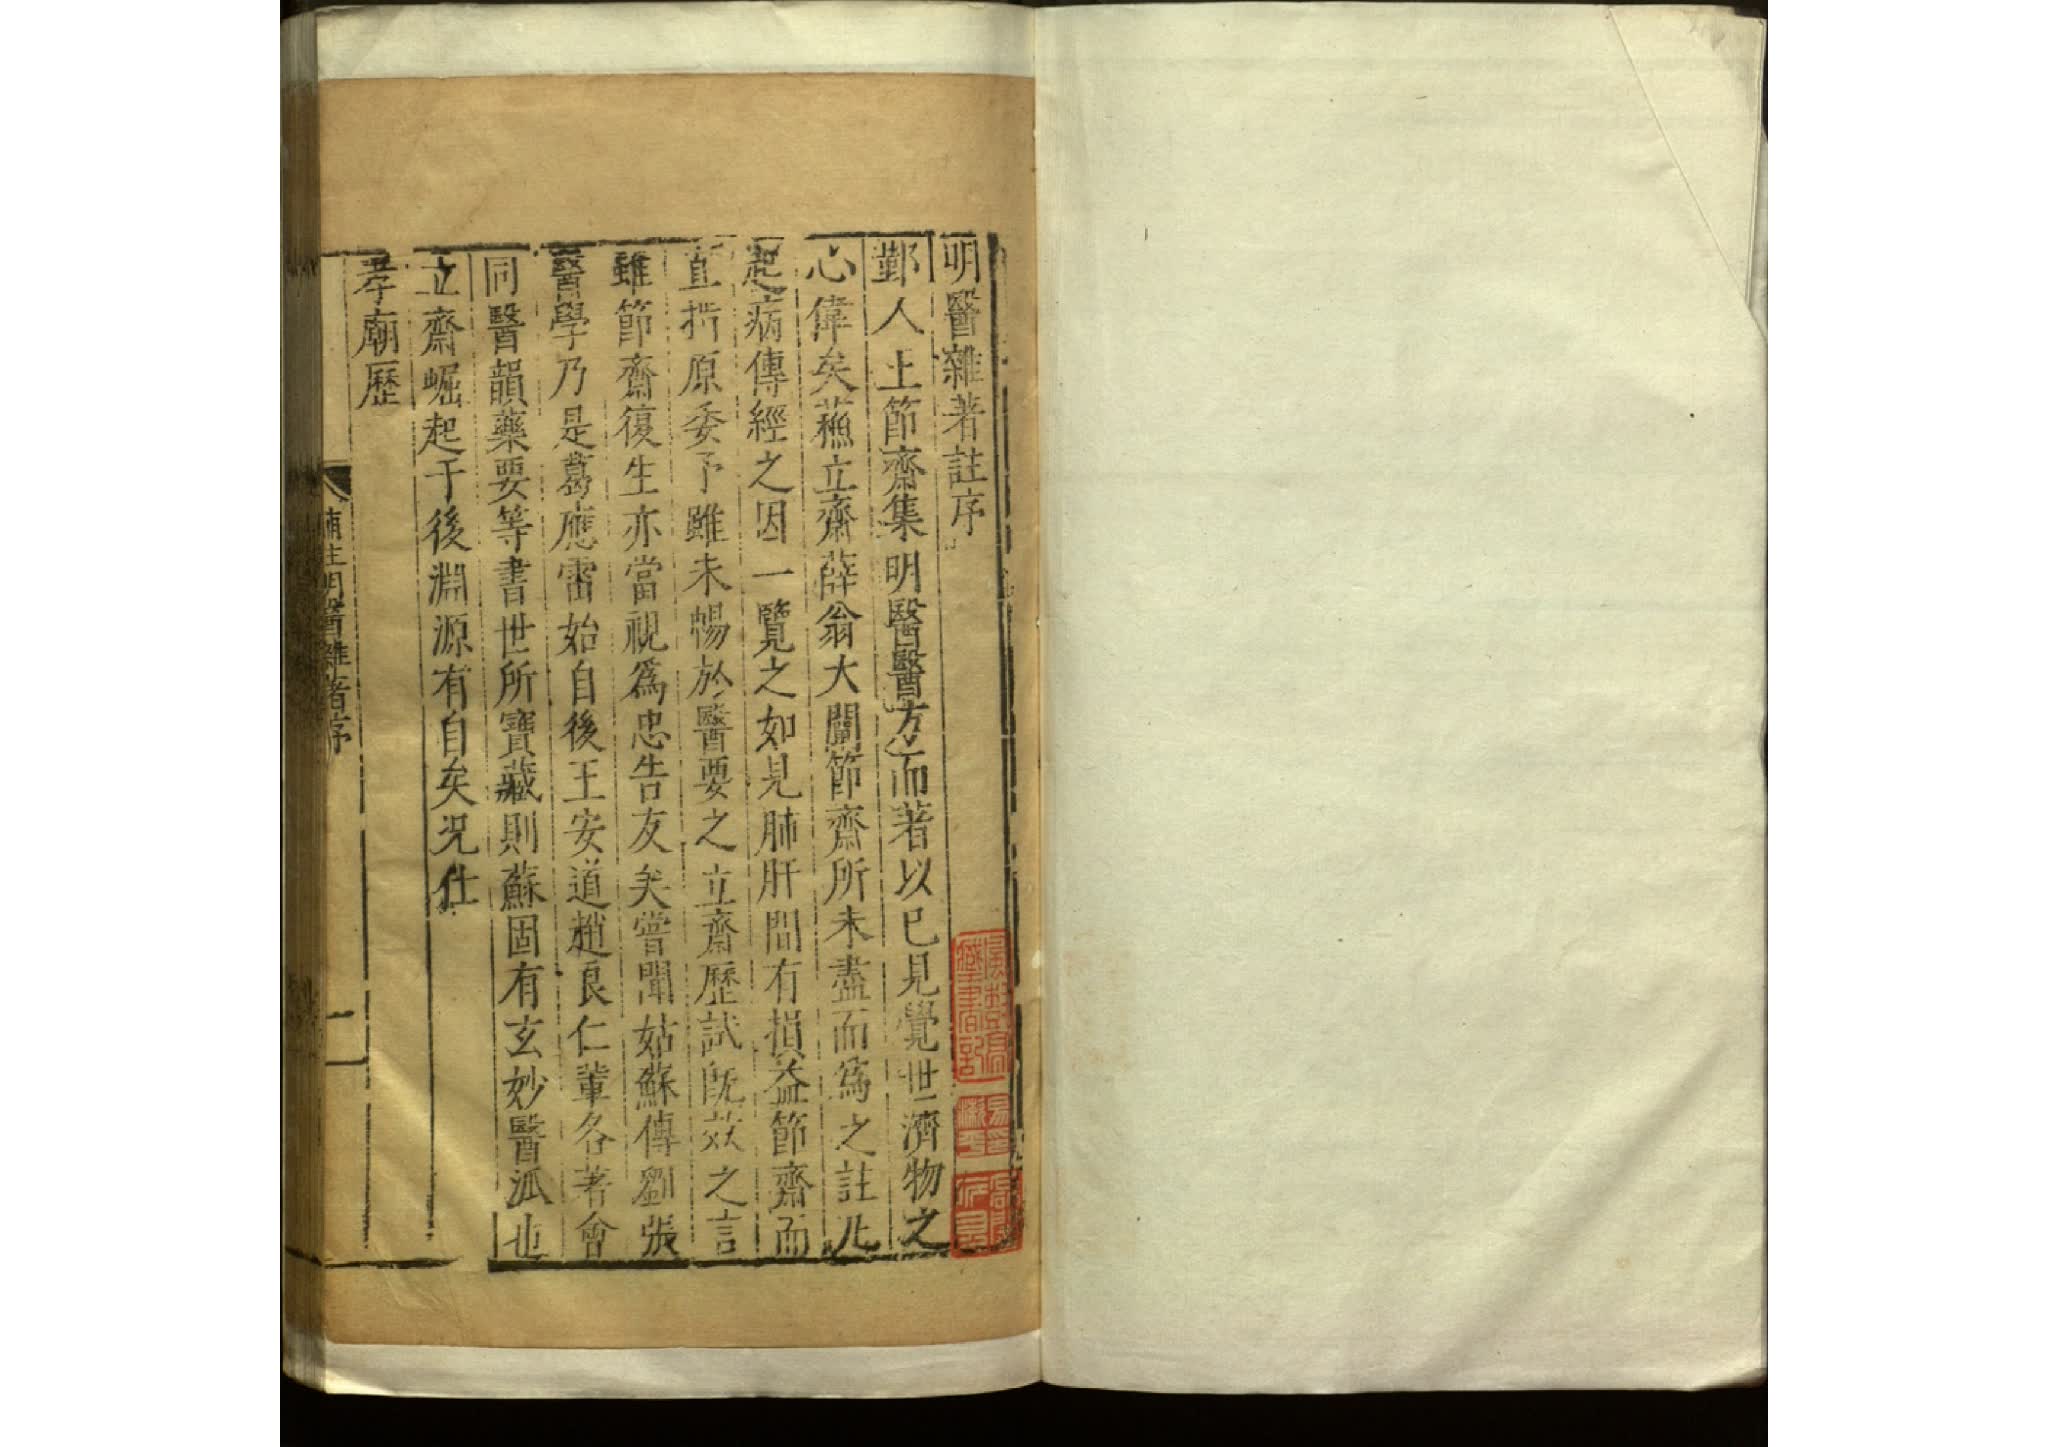 明醫雜著註序
鄞人王節齋集明醫醫方而著以已見覺世濟物之
心偉矣蘓立齋薛翁大闡節齋所未盡而爲之註凡
起病傳經之因一覽之如見肺肝間有損益節齋而
直指原委予雖未暢於醫要之立齋歷試旣效之言
雖節齋復生亦當視爲忠告友矣嘗聞姑蘇傳劉張
醫學乃是葛應雷始自後王安道趙良仁輩各著會
同醫韻藥要等書世所寶藏則蘇固有玄妙醫派也
立齋崛起于後淵源有自矣况仕
孝廟歷
補註明醫雜著序
一
藏書記